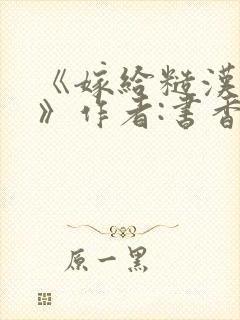 《嫁给糙漢
》作者:書香
原一黑